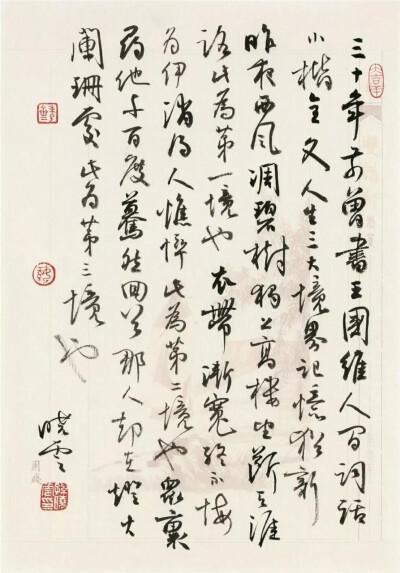 三十年前曾書王國維人间詞話
小楷全文人生三大境界記憶猶新
昨夜西風凋碧樹獨上高樓望斷天涯
路此為第一境也衣帶漸寬終不悔
为伊消得人憔悴此為第二境也眾裏
尋他千百度驀然回首那人却在燈火
闌珊處此为第三境也
曉雲
大吉羊